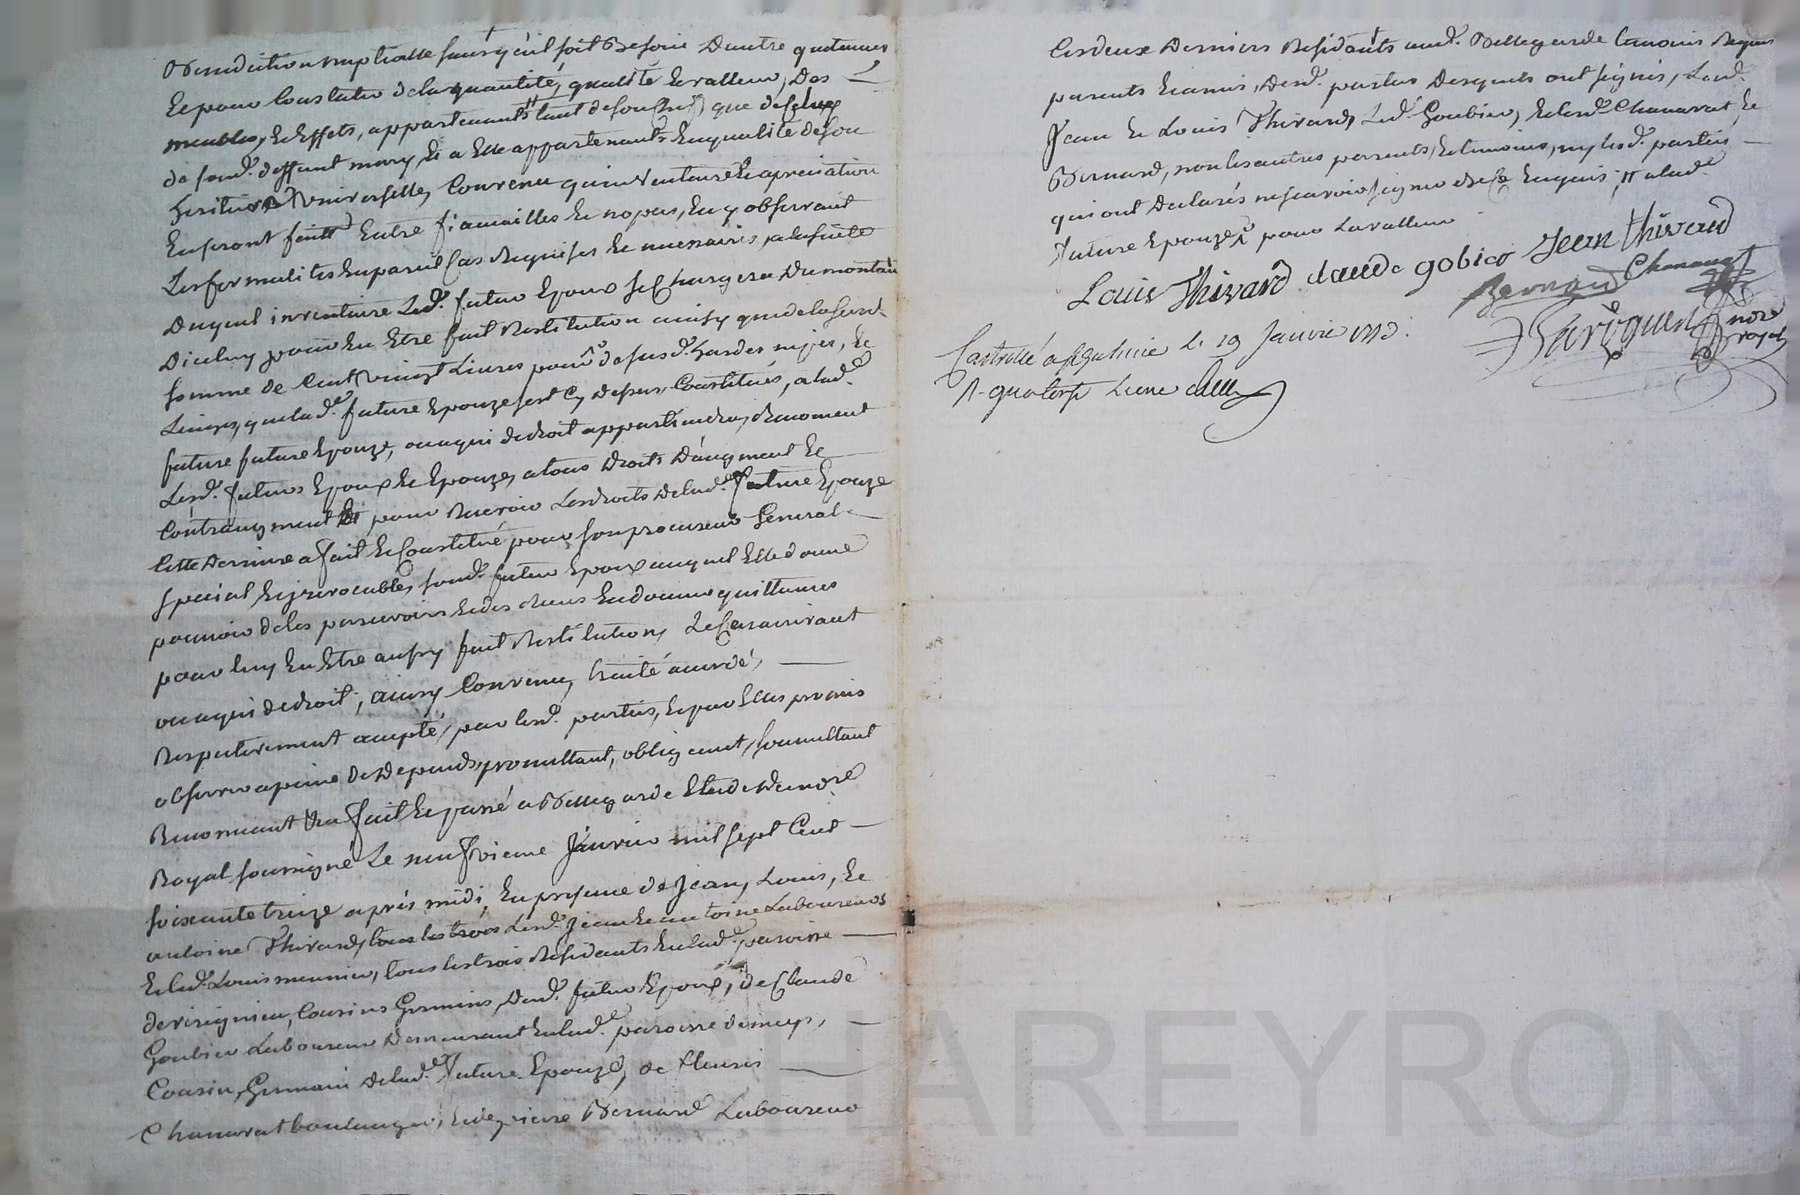 Benediction nuptialle sans qu'il soit Besoin Dautre quitances
Et pour Constater de la quantité, qualité Et valleur, Des
meubles, Et Effets, appartenants " tant de son Chef, que de Celuy
de sond. deffunt mary, Et a Elle appartenants En qualité de son
heritiere Universelle, Convenu qu'inventaire Et apreciation
En seront faits Entre fiancailles Et nopces, En y observant
Les formalites En pareil Cas Requises Et necessaires, a la suite
Duquel inventaire Led. futur Epoux se Chargera Du montant
Diceluy pour En Etre fait Restitution ainsy que de la sus d.
somme de Cent vingt Livres pour de sus d. hardes nipes, Et
Linges, que lad. future Epouze sest Cy dessus Constitués, a lad.
future future Epouze, ou a qui de droit appartiendra, Renoncent
Lesd. futurs Epoux Et Epouze, a tous Droits D'augment Et
Contraugment Et pour Recevoir Les droits de lad. future Epouze
Cette Derniere a fait Et Constitué pour son procureur General
special Et irrevocable, sond. futur Epoux auquel Elle donne
pouvoir de les percevoir Et des Receus En donner quittances
pour luy En Etre aussy fait Restitution, Le Cas arrivant
ou a qui de droit, ainsy Convenu, traité accordé,
Respectivement accepté, par lesd. parties, Et par Elles promis
observer a peine de Depends, promettant, obligeant, soumettant
Renonceant &a fait Et passé a Bellegarde Etude De nore
Royal soussigné Le neufvieme Janvier mil sept Cent
soixante treize après midi, En presence de Jean, Louis, Et
antoine Thivard, tous les trois Lesd. Jean Et antoine Laboureurs
Et led. Louis meunier, tous les trois Residants En lad. paroisse
de rivignieu, Cousins Germains, Dud. futur Epoux, de Claude
Goubier Laboureur Demeurant En lad. paroisse de meys,
Cousin Germain De lad. future Epouze, de fleuris
Chanavat boulanger, Et de pierre Bernard Laboureur
Ces deux Derniers Residants aud. Bellegarde temoins Requis
parents Et amis, Desd. parties Desquels ont signés, Lesd.
Jean Et Louis Thivard, Led. Goubier, Et lesd. Chanavat, Et
Bernard, non les autres parents, Et temoins, ny lesd. parties
qui ont Declarés ne scavoir signer de Ce Enquis, " a lad.
future Epouze, pour La valleur
Louis Thivard Claude gobier Jean thivard
Bernard Chanavat
Baricquen nore royal
Controllé a le 19 Janvier 1773.
R. quatorze Livres
CHAREYRON